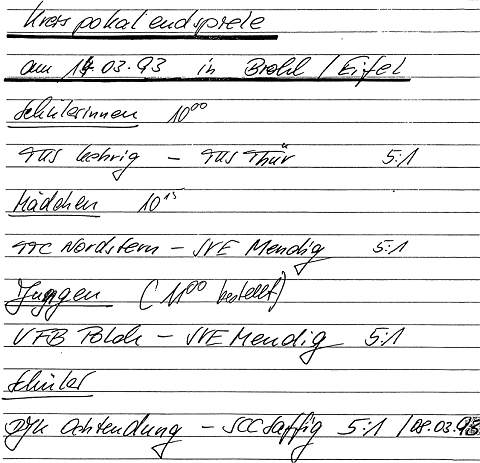 Kreispokalendspiele
am 14.03.93 in Brohl / Eifel
Schülerinnen 10⁰⁰
TUS Kehrig - TUS Thür 5:1
Mädchen 10¹⁵
TTC Nordstern - SVE Mendig 5:1
Jungen (11⁰⁰ bestellt)
VFB Polch - SVE Mendig 5:1
Schüler
DJK Ochtendung - SCC Saffig 5:1 / 08.03.93